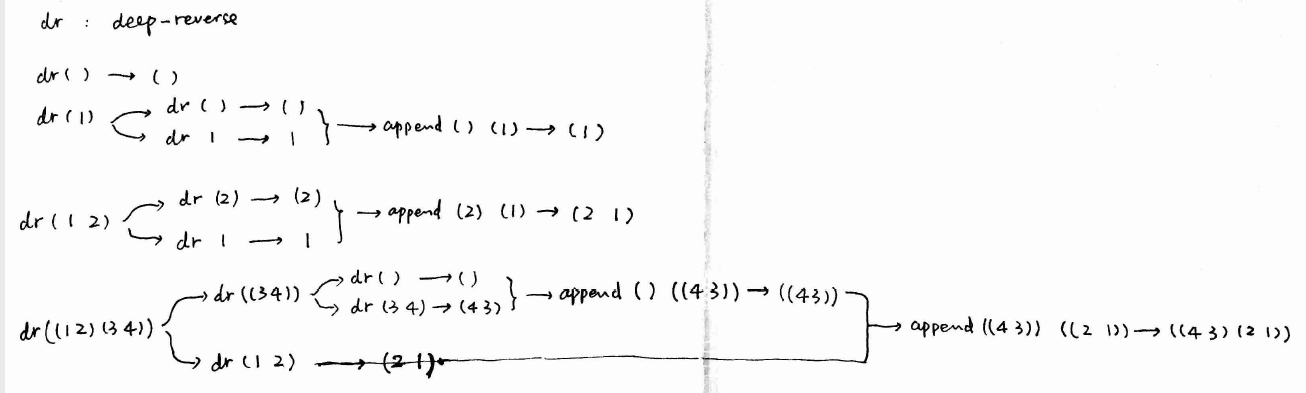 dr : deep-reverse
dr ( ) → ( )
dr (1) dr ( ) → ( )
dr 1 → 1 } → append ( ) (1) → (1)
dr (1 2) dr (2) → (2)
dr 1 → 1 } → append (2) (1) → (2 1)
dr ((1 2) (3 4)) dr ((3 4)) dr ( ) → ( )
dr (3 4) → (4 3) } → append ( ) ((4 3)) → ((4 3))
dr (1 2) → (2 1)
→ append ((4 3)) ((2 1)) → ((4 3) (2 1))